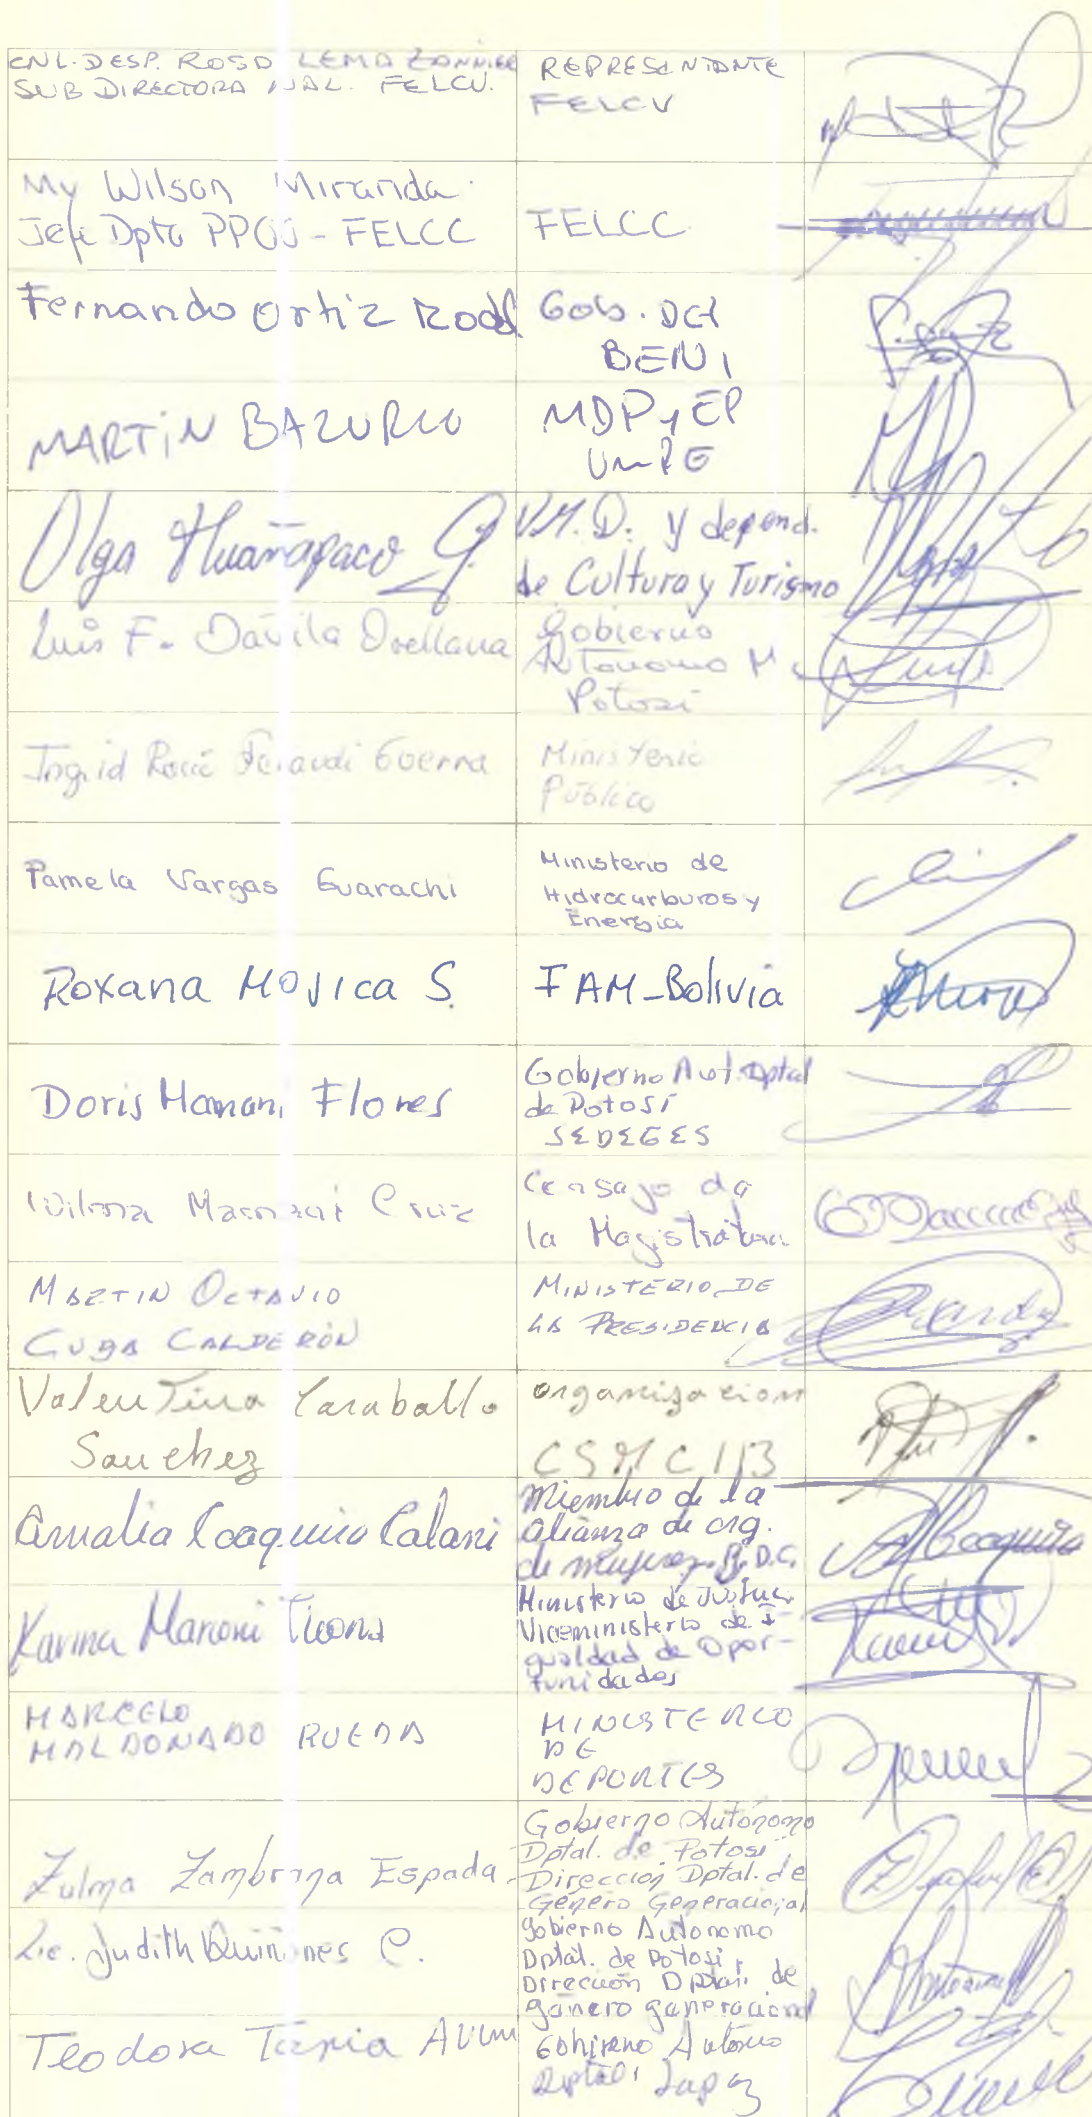 CNL. DESP. ROSA LEMA ZONNIER
SUB DIRECTORA NAL. FELCV.
REPRESENTANTE
FELCV
My Wilson Miranda
Jefe Dpto PPOO - FELCC
FELCC
Fernando Ortiz Rodf.
Gob. Del
BENI
MARTIN BAZURCO
MDPyEP
Olga Huañapaco G.
V.M.D. y depend.
de Cultura y Turismo
Luis F. Davila Orellana
Gobierno
Autonomo M.
Potosi
Ingrid Rocio Guerra
Ministerio
Público
Pamela Vargas Guarachi
Ministerio de
Hidrocarburos y
Energia
Roxana MOJICA S.
FAM-Bolivia
Doris Mamani Flores
Gobierno Aut. Dptal
de Potosí
SEDEGES
Wilma Mamani Cruz
Consejo de
la Magistratura
MARTIN OCTAVIO
CUBA CALDERÓN
MINISTERIO DE
LA PRESIDENCIA
Valentina Caraballo
Sanchez
organizacion
CSMCIB
Amalia Coaquira Calani
Miembro de la
alianza de org.
de mujeres
Karina Mamani Ticona
Ministerio de Justicia
Viceministerio de I
gualdad de Opor-
tunidades
MARCELO
MALDONADO RUEDA
MINISTERIO
DE
DEPORTES
Zulma Zambrana Espada
Gobierno Autónomo
Dptal. de Potosi
Dirección Dptal. de
Género Generacional
Lic. Judith Quiñones C.
Gobierno Autonomo
Dptal. de Potosi,
Dirección Dptal. de
género generacional
Teodora Tapia
Gobierno Autono
Dptal. Lapaz